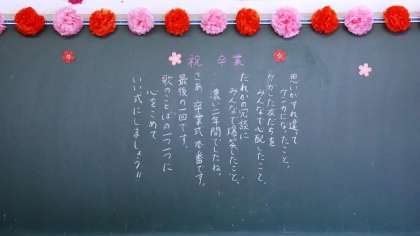 祝 卒業
思いがすれ違って
ケンカになったこと。
ケガした友だちを
みんなで心配したこと。
だれかの冗談に
みんなで爆笑したこと。
濃い二年間でしたね。
さあ、卒業式本番です。
最後の一回です。
歌のことばの一つ一つに
心をこめて
いい式にしましょう!!